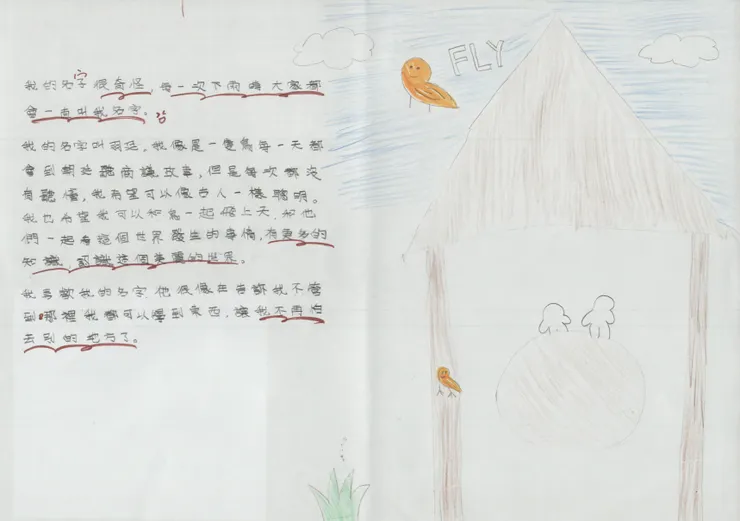 我的名字很奇怪,每一次下雨時大家都
會一直叫我名字。
我的名字叫羽廷,我像是一隻鳥每一天都
會到朝廷聽商議故事,但是每次都沒
有聽懂,我希望可以像古人一樣聰明。
我也希望我可以和鳥一起飛上天,和他
們一起看這個世界發生的事情,有更多的
知識,認識這個美麗的世界。
我喜歡我的名字,他很像在告訴我不管
到哪裡我都可以學到東西,讓我不再怕
去別的地方了。
FLY